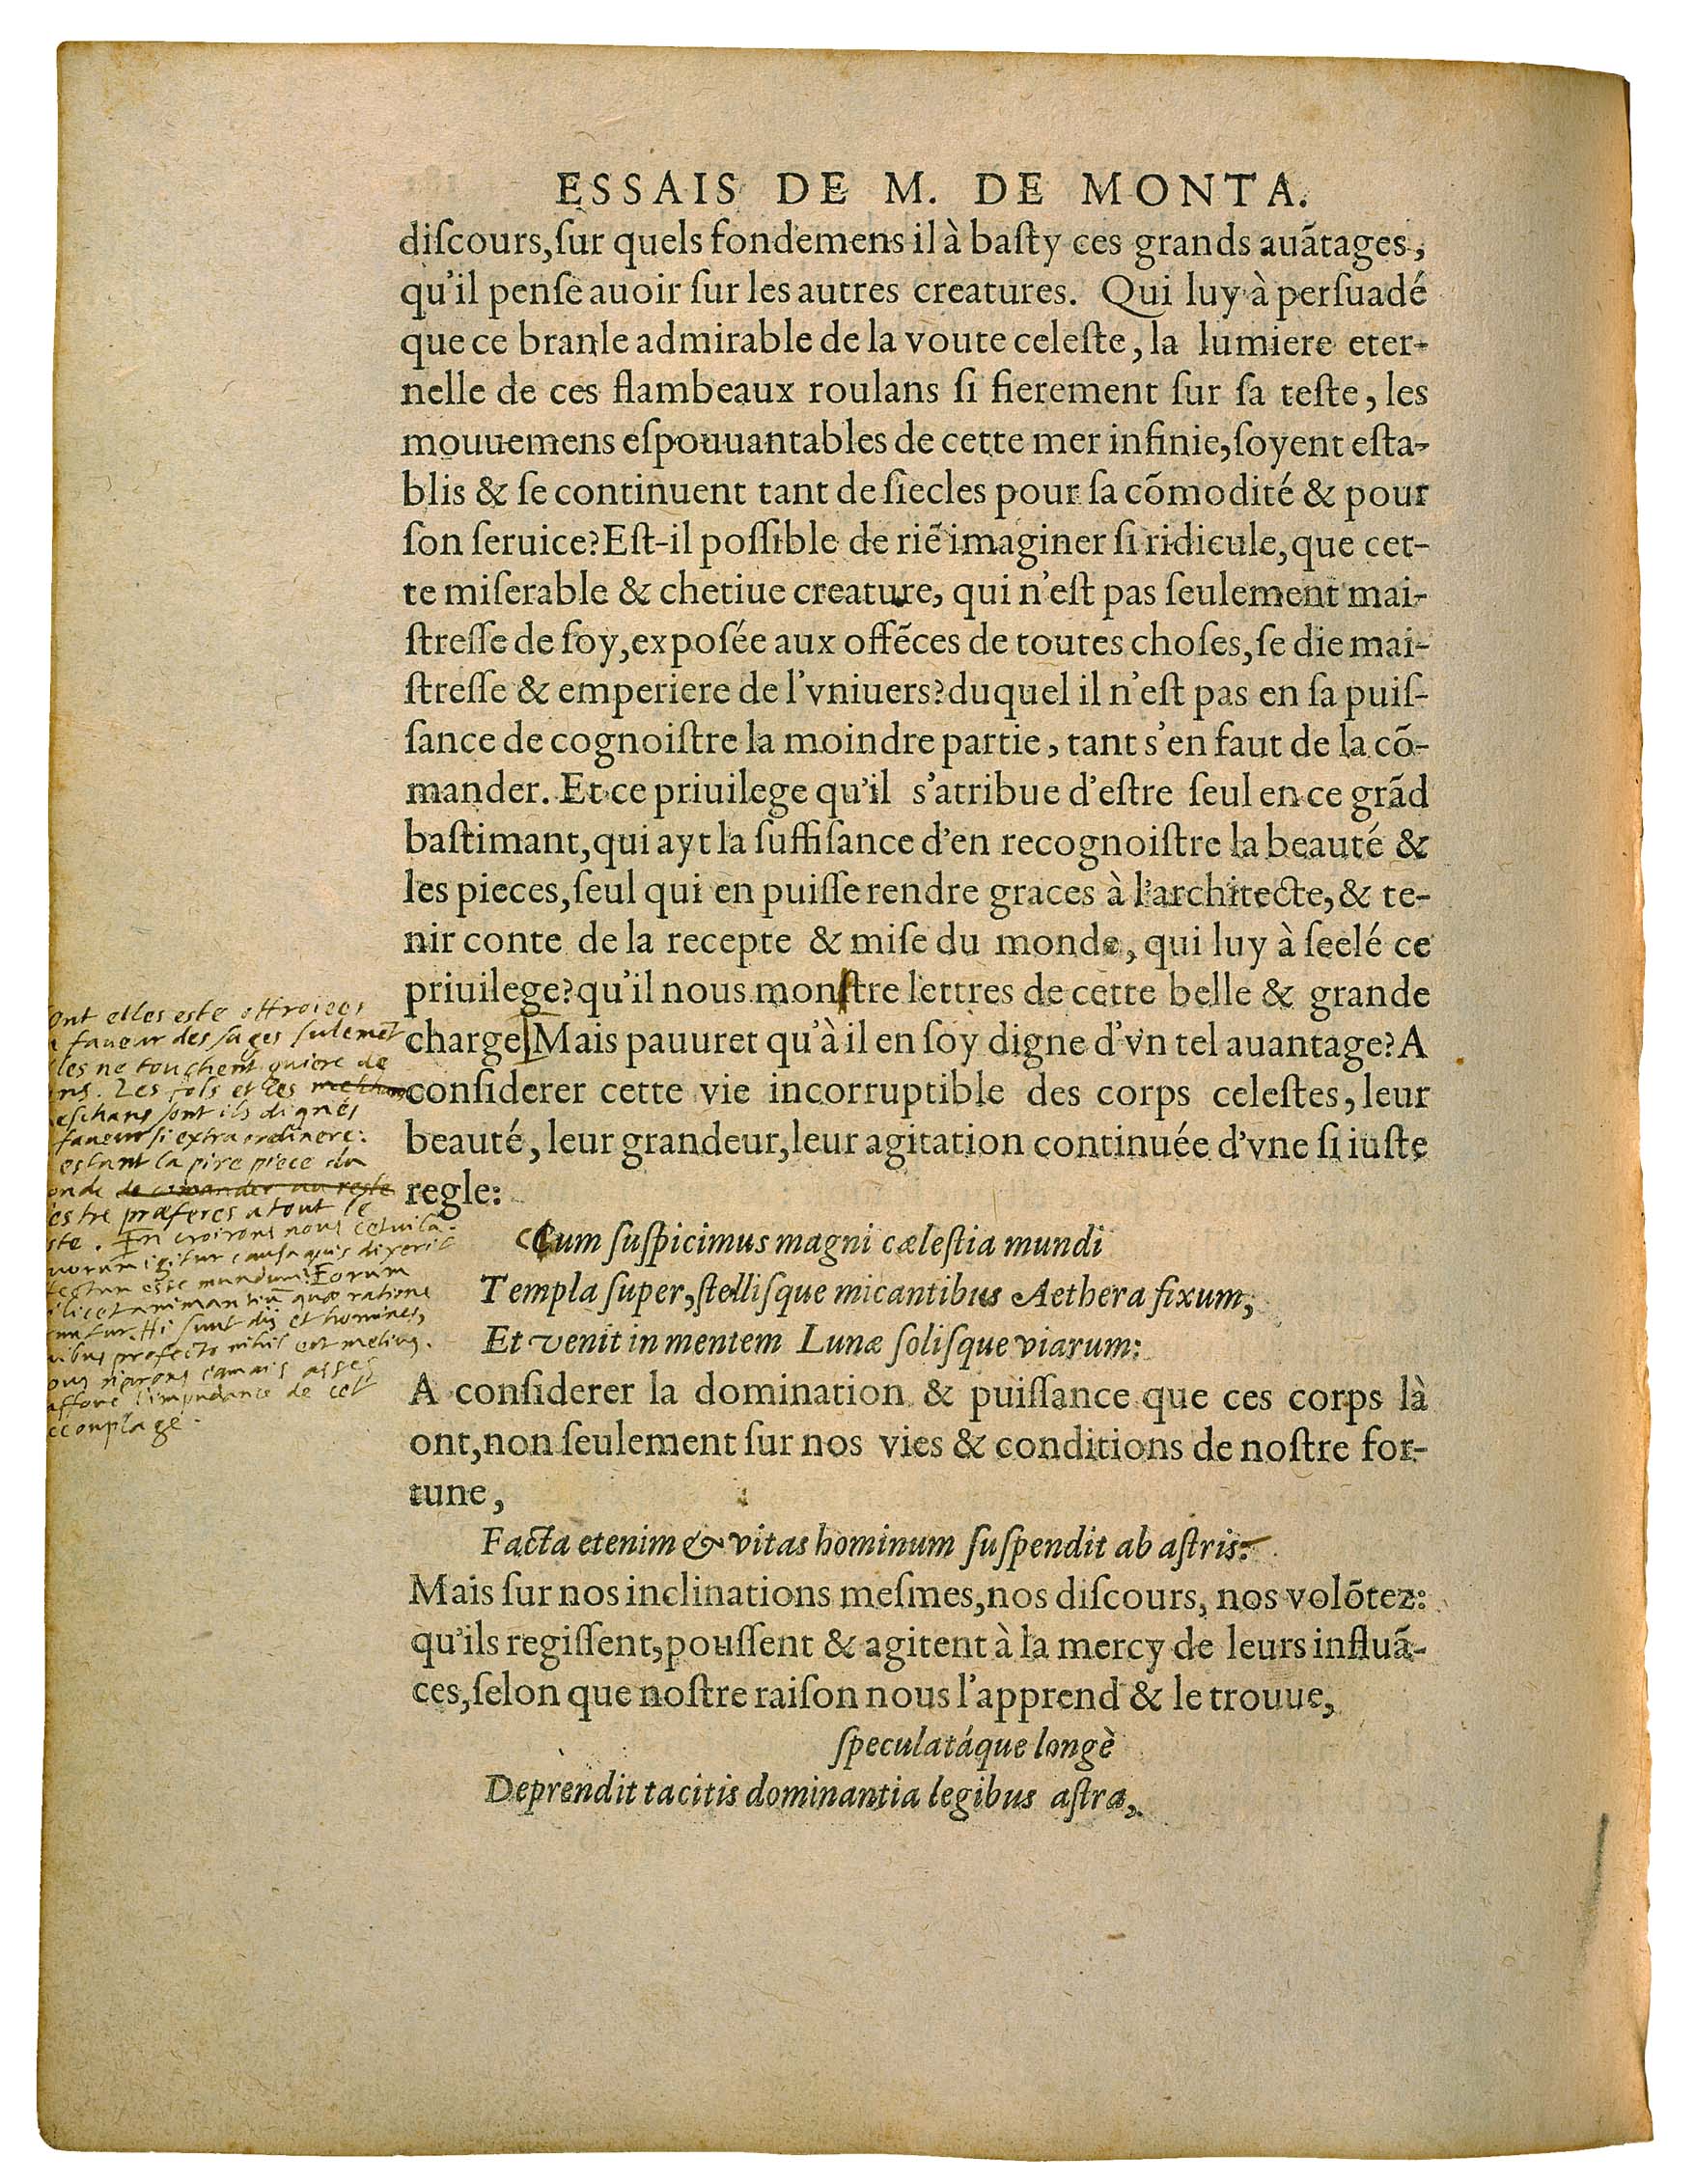 ESSAIS DE M. DE MONTA.
diſcours,ſur quels fondemens il à baſty ces grands auãtages,
qu'il penſe auoir ſur les autres creatures. Qui luy à perſuadé
que ce branle admirable de la voute celeſte, la lumiere eter-
nelle de ces flambeaux roulans ſi fierement ſur ſa teſte, les
mouuemens eſpouuantables de cette mer infinie, ſoyent eſta-
blis & ſe continuent tant de ſiecles pour ſa cõmodité & pour
ſon ſeruice? Eſt-il poſſible de riẽ imaginer ſi ridicule, que cet-
te miſerable & chetiue creature, qui n'eſt pas ſeulement mai-
ſtreſſe de ſoy, expoſée aux offẽces de toutes choſes, ſe die mai-
ſtreſſe & emperiere de l'vniuers? duquel il n'eſt pas en ſa puiſ-
ſance de cognoiſtre la moindre partie, tant s'en faut de la cõ-
mander. Et ce priuilege qu'il s'atribue d'eſtre ſeul en ce grãd
baſtimant, qui ayt la ſuffiſance d'en recognoiſtre la beauté &
les pieces, ſeul qui en puiſſe rendre graces à l'architecte, & te-
nir conte de la recepte & miſe du monde, qui luy à ſeelé ce
priuilege? qu'il nous monſtre lettres de cette belle & grande
charge Mais pauuret qu'à il en ſoy digne d'vn tel auantage? A
conſiderer cette vie incorruptible des corps celeſtes, leur
beauté, leur grandeur, leur agitation continuée d'vne ſi iuſte
regle:
Cum ſuſpicimus magni cæleſtia mundi
Templa ſuper, ſtelliſque micantibus Aethera fixum,
Et venit in mentem Lunæ ſoliſque viarum:
A conſiderer la domination & puiſſance que ces corps là
ont, non ſeulement ſur nos vies & conditions de noſtre for-
tune,
Facta etenim & vitas hominum ſuſpendit ab aſtris:
Mais ſur nos inclinations meſmes, nos diſcours, nos volõtez:
qu'ils regiſſent, pouſſent & agitent à la mercy de leurs influã-
ces, ſelon que noſtre raiſon nous l'apprend & le trouue,
ſpeculatáque longè
Deprendit tacitis dominantia legibus aſtra,
ont elles este ottroiees
faveur des sages sulemẽt
les ne touchent guiere de
Les fols et les
eschans sont ils dignes
faveur si extraordinere:
estant la pire piece du
de comander au reste
estre præferes a tout le
ste. En croirons nous cetuila.
uorum igitur causa quis dixerit
fectum esse mundum? Eorum
licet animantiũ quæ ratione
untur. Hi sunt dij et homines,
uibus profecto nihil est melius.
ous n'arons iamais asses
affoue l'impudance de cet
ccouplage.